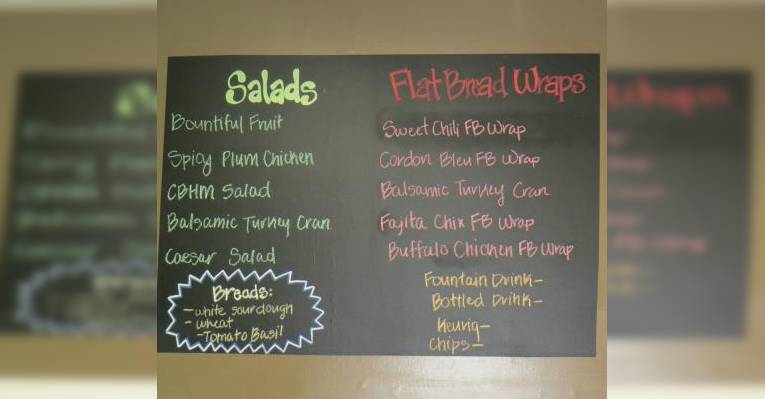 Salads
Bountiful Fruit
Spicy Plum Chicken
CBHM Salad
Balsamic Turkey Cran
Caesar Salad
Breads:
- white sourdough
- wheat
- Tomato Basil
Flat Bread Wraps
Sweet Chili FB Wrap
Cordon Bleu FB Wrap
Balsamic Turkey Cran
Fajita Chix FB Wrap
Buffalo Chicken FB Wrap
Fountain Drink-
Bottled Drink-
Keurig-
Chips-